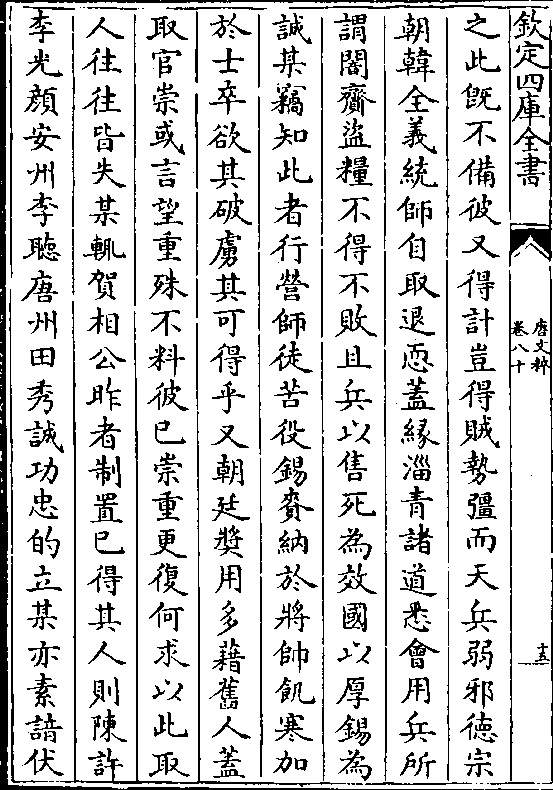 欽定四庫全書
唐文粹
卷八十
十五
之此既不備彼又得計豈得賊勢彊而天兵弱邪德宗
朝韓全義統師自取退恧蓋緣淄青諸道悉會用兵所
謂閣齎盜糧不得不敗且兵以售死為效國以厚錫為
誠某竊知此者行營師徒苦役錫賚納於將帥飢寒加
於士卒欲其破虜其可得乎又朝廷奬用多藉舊人蓋
取官崇或言望重殊不料彼已崇重更復何求以此取
人往往皆失某輒賀相公昨者制置已得其人則陳許
李光顔安州李聽唐州田秀誠功忠的立某亦素諳伏